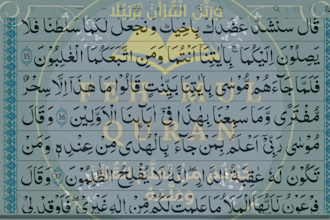 وَرَتِّلِ الْقُرْآنَ تَرْتِيلًا
قَالَ سَنَشُدُّ عَضُدَكَ بِأَخِيكَ وَنَجْعَلُ لَكُمَا سُلْطَٰنًا فَلَا
يَصِلُونَ إِلَيْكُمَا بِـَٔايَٰتِنَآ أَنتُمَا وَمَنِ ٱتَّبَعَكُمَا ٱلْغَٰلِبُونَ ٣٥
فَلَمَّا جَآءَهُم مُّوسَىٰ بِـَٔايَٰتِنَا بَيِّنَٰتٍ قَالُوا۟ مَا هَٰذَآ إِلَّا سِحْرٌ
مُّفْتَرًى وَمَا سَمِعْنَا بِهَٰذَا فِىٓ ءَابَآئِنَا ٱلْأَوَّلِينَ ٣٦ وَقَالَ
مُوسَىٰ رَبِّىٓ أَعْلَمُ بِمَن جَآءَ بِٱلْهُدَىٰ مِنْ عِندِهِۦ وَمَن
تَكُونُ لَهُۥ عَٰقِبَةُ ٱلدَّارِ إِنَّهُۥ لَا يُفْلِحُ ٱلظَّٰلِمُونَ ٣٧ وَقَالَ
فِرْعَوْنُ يَٰٓأَيُّهَا ٱلْمَلَأُ مَا عَلِمْتُ لَكُم مِّنْ إِلَٰهٍ غَيْرِى فَأَوْقِدْ لِى
QURAN